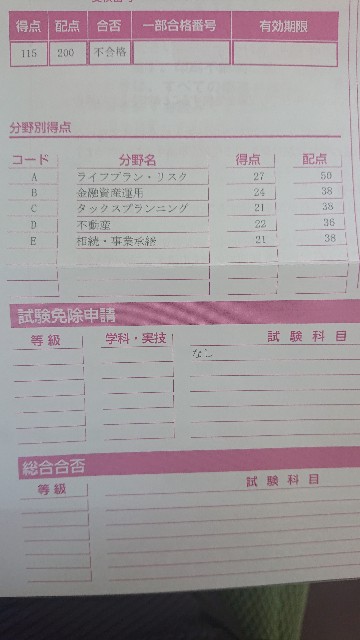 得点 配点 合否 一部合格番号 有効期限
115 200 不合格
分野別得点
コード 分野名 得点 配点
A ライフプラン・リスク 27 50
B 金融資産運用 24 38
C タックスプランニング 21 38
D 不動産 22 36
E 相続・事業承継 21 38
試験免除申請
等級 学科・実技 試験科目
なし
総合合否
等級 試験科目